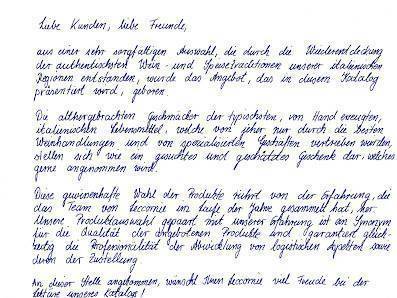 Liebe Kunden, liebe Freunde,
aus einer sehr sorgfältigen Auswahl, die durch die Wiederentdeckung
der authentischsten Wein- und Speisetraditionen unserer italienischen
Regionen entstanden, wurde das Angebot, das in diesem Katalog
präsentiert wird, geboren.
Die althergebrachten Geschmäcker der typischsten, von Hand erzeugten,
italienischen Lebensmittel, welche von jeher nur durch die besten
Weinhandlungen und von spezialisierten Geschäften vertrieben wurden,
stellen sich wie ein gesuchtes und geschätztes Geschenk dar, welches
gerne angenommen wird.
Diese gewissenhafte Wahl der Produkte rührt von der Erfahrung, die
das Team von Leccornie im Laufe der Jahre gesammelt hat, her.
Unsere Produktauswahl gepaart mit unserer Erfahrung ist ein Synonym
für die Qualität der angebotenen Produkte und garantiert gleich-
zeitig die Professionalität der Abwicklung von logistischen Aspekten sowie
denen der Zustellung.
An dieser Stelle angekommen, wünscht Ihnen Leccornie viel Freude bei der
Lektüre unseres Katalogs!